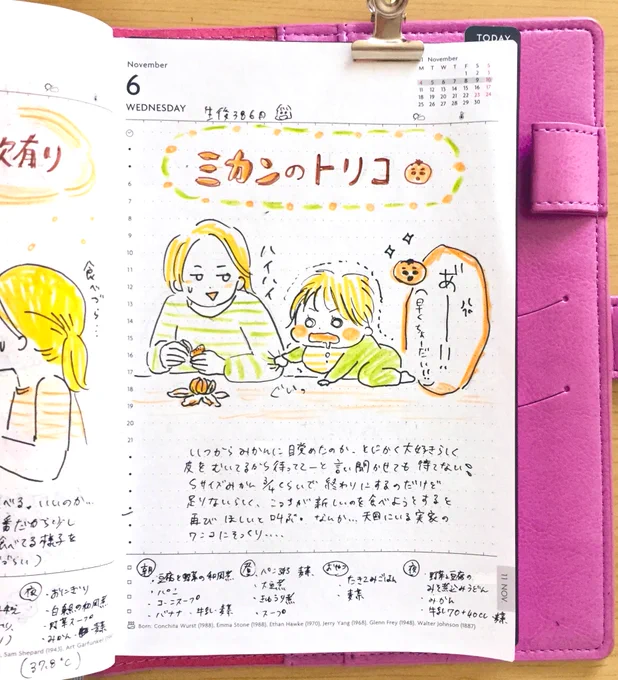 次有り
食べづら…
November
6
WEDNESDAY
生後386日
TODAY
11 November
M T W T F S S
1 2 3
4 5 6 7 8 9 10
11 12 13 14 15 16 17
18 19 20 21 22 23 24
25 26 27 28 29 30
ミカンのトリコ
ハイハイ
あ"ーー!!
(早くちょーだい!!)
ぐいっ
6
7
8
9
10
11
12
13
14
15
16
17
18
19
20
21
いつからみかんに目覚めたのか、とにかく大好きらしく
皮をむいてるから待っててーと言い聞かせても待てない
Sサイズみかん3/4くらいで終わりにするのだけど
足りないらしく、こっちが新しいのを食べようとすると
再びほしいと叫ぶ。なんか…天国にいる実家の
ワンコにそっくり….
べる。いいのか…
番だから少し
食べてる様子を
朝
・豆腐と野菜の和風煮
・パン
・コーンスープ
・バナナ・牛乳・麦茶
昼
・パン粥 麦茶
・大豆煮
・きゅうり煮
・スープ
おやつ
・たきこみごはん
麦茶
夜
・野菜と豆腐の
みそ煮込みうどん
・みかん
・牛乳70+40cc・麦茶
夜
・おにぎり
・白飯の和風煮
・野菜スープ
・みかん・麦茶
11 NOV
Born: Conchita Wurst (1988), Emma Stone (1988), Ethan Hawke (1970), Jerry Yang (1968), Glenn Frey (1948), Walter Johnson (1887)
Sam Shepard (1943), Art Garfunkel
(37.8℃)